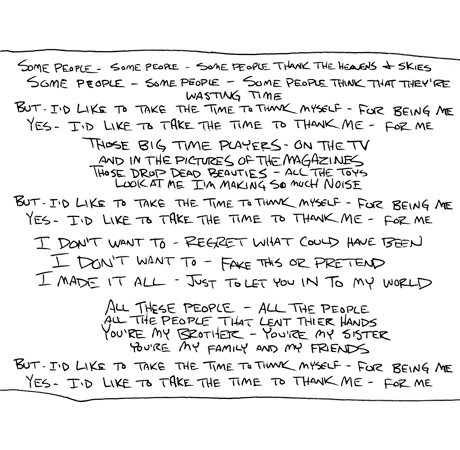 SOME PEOPLE - SOME PEOPLE - SOME PEOPLE THANK THE HEAVENS & SKIES
SOME PEOPLE - SOME PEOPLE - SOME PEOPLE THINK THAT THEY'RE
WASTING TIME
BUT - I'D LIKE TO TAKE THE TIME TO THANK MYSELF - FOR BEING ME
YES - I'D LIKE TO TAKE THE TIME TO THANK ME - FOR ME
THOSE BIG TIME PLAYERS - ON THE TV
AND IN THE PICTURES OF THE MAGAZINES
THOSE DROP DEAD BEAUTIES - ALL THE TOYS
LOOK AT ME I'M MAKING SO MUCH NOISE
BUT - I'D LIKE TO TAKE THE TIME TO THANK MYSELF - FOR BEING ME
YES - I'D LIKE TO TAKE THE TIME TO THANK ME - FOR ME
I DON'T WANT TO - REGRET WHAT COULD HAVE BEEN
I DON'T WANT TO - FAKE THIS OR PRETEND
I MADE IT ALL - JUST TO LET YOU IN TO MY WORLD
ALL THESE PEOPLE - ALL THE PEOPLE
ALL THE PEOPLE THAT LENT THIER HANDS
YOU'RE MY BROTHER - YOU'RE MY SISTER
YOU'RE MY FAMILY AND MY FRIENDS
BUT - I'D LIKE TO TAKE THE TIME TO THANK MYSELF - FOR BEING ME
YES - I'D LIKE TO TAKE THE TIME TO THANK ME - FOR ME